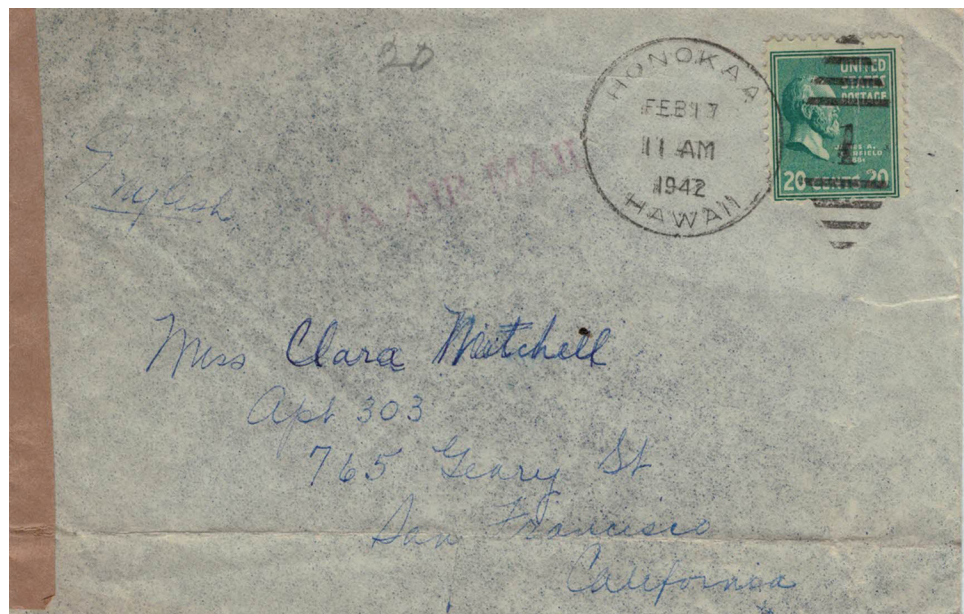 20
HONOKAA
FEB 17
11 AM
1942
HAWAII
UNITED
STATES
POSTAGE
1
JAMES A.
GARFIELD
20 CENTS 20
English
VIA AIR MAIL
Miss Clara Mitchell
Apt 303
765 Geary St
San Francisco
California